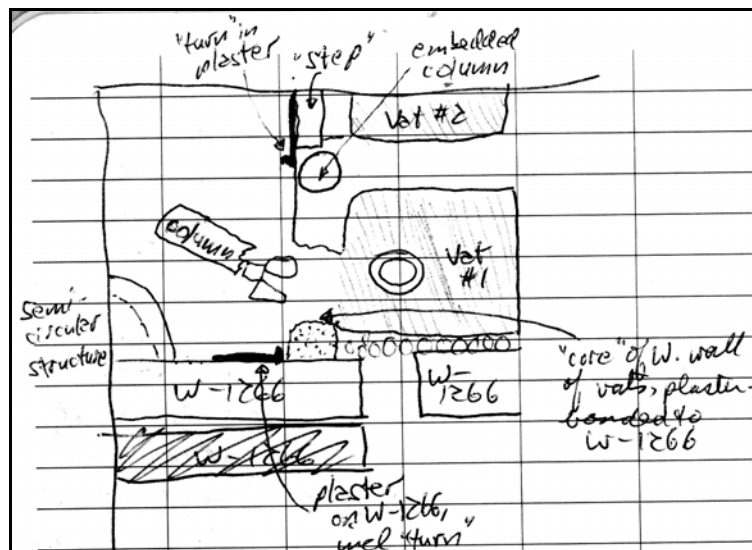 "turn" in
plaster
"step"
embedded
column
Vat #2
column
Vat
#1
semi-
circular
structure
W-1266
W-
1266
"core" of W. wall
of vats, plaster-
bonded to
W-1266
W-1266
plaster
on W-1266,
incl "turn"